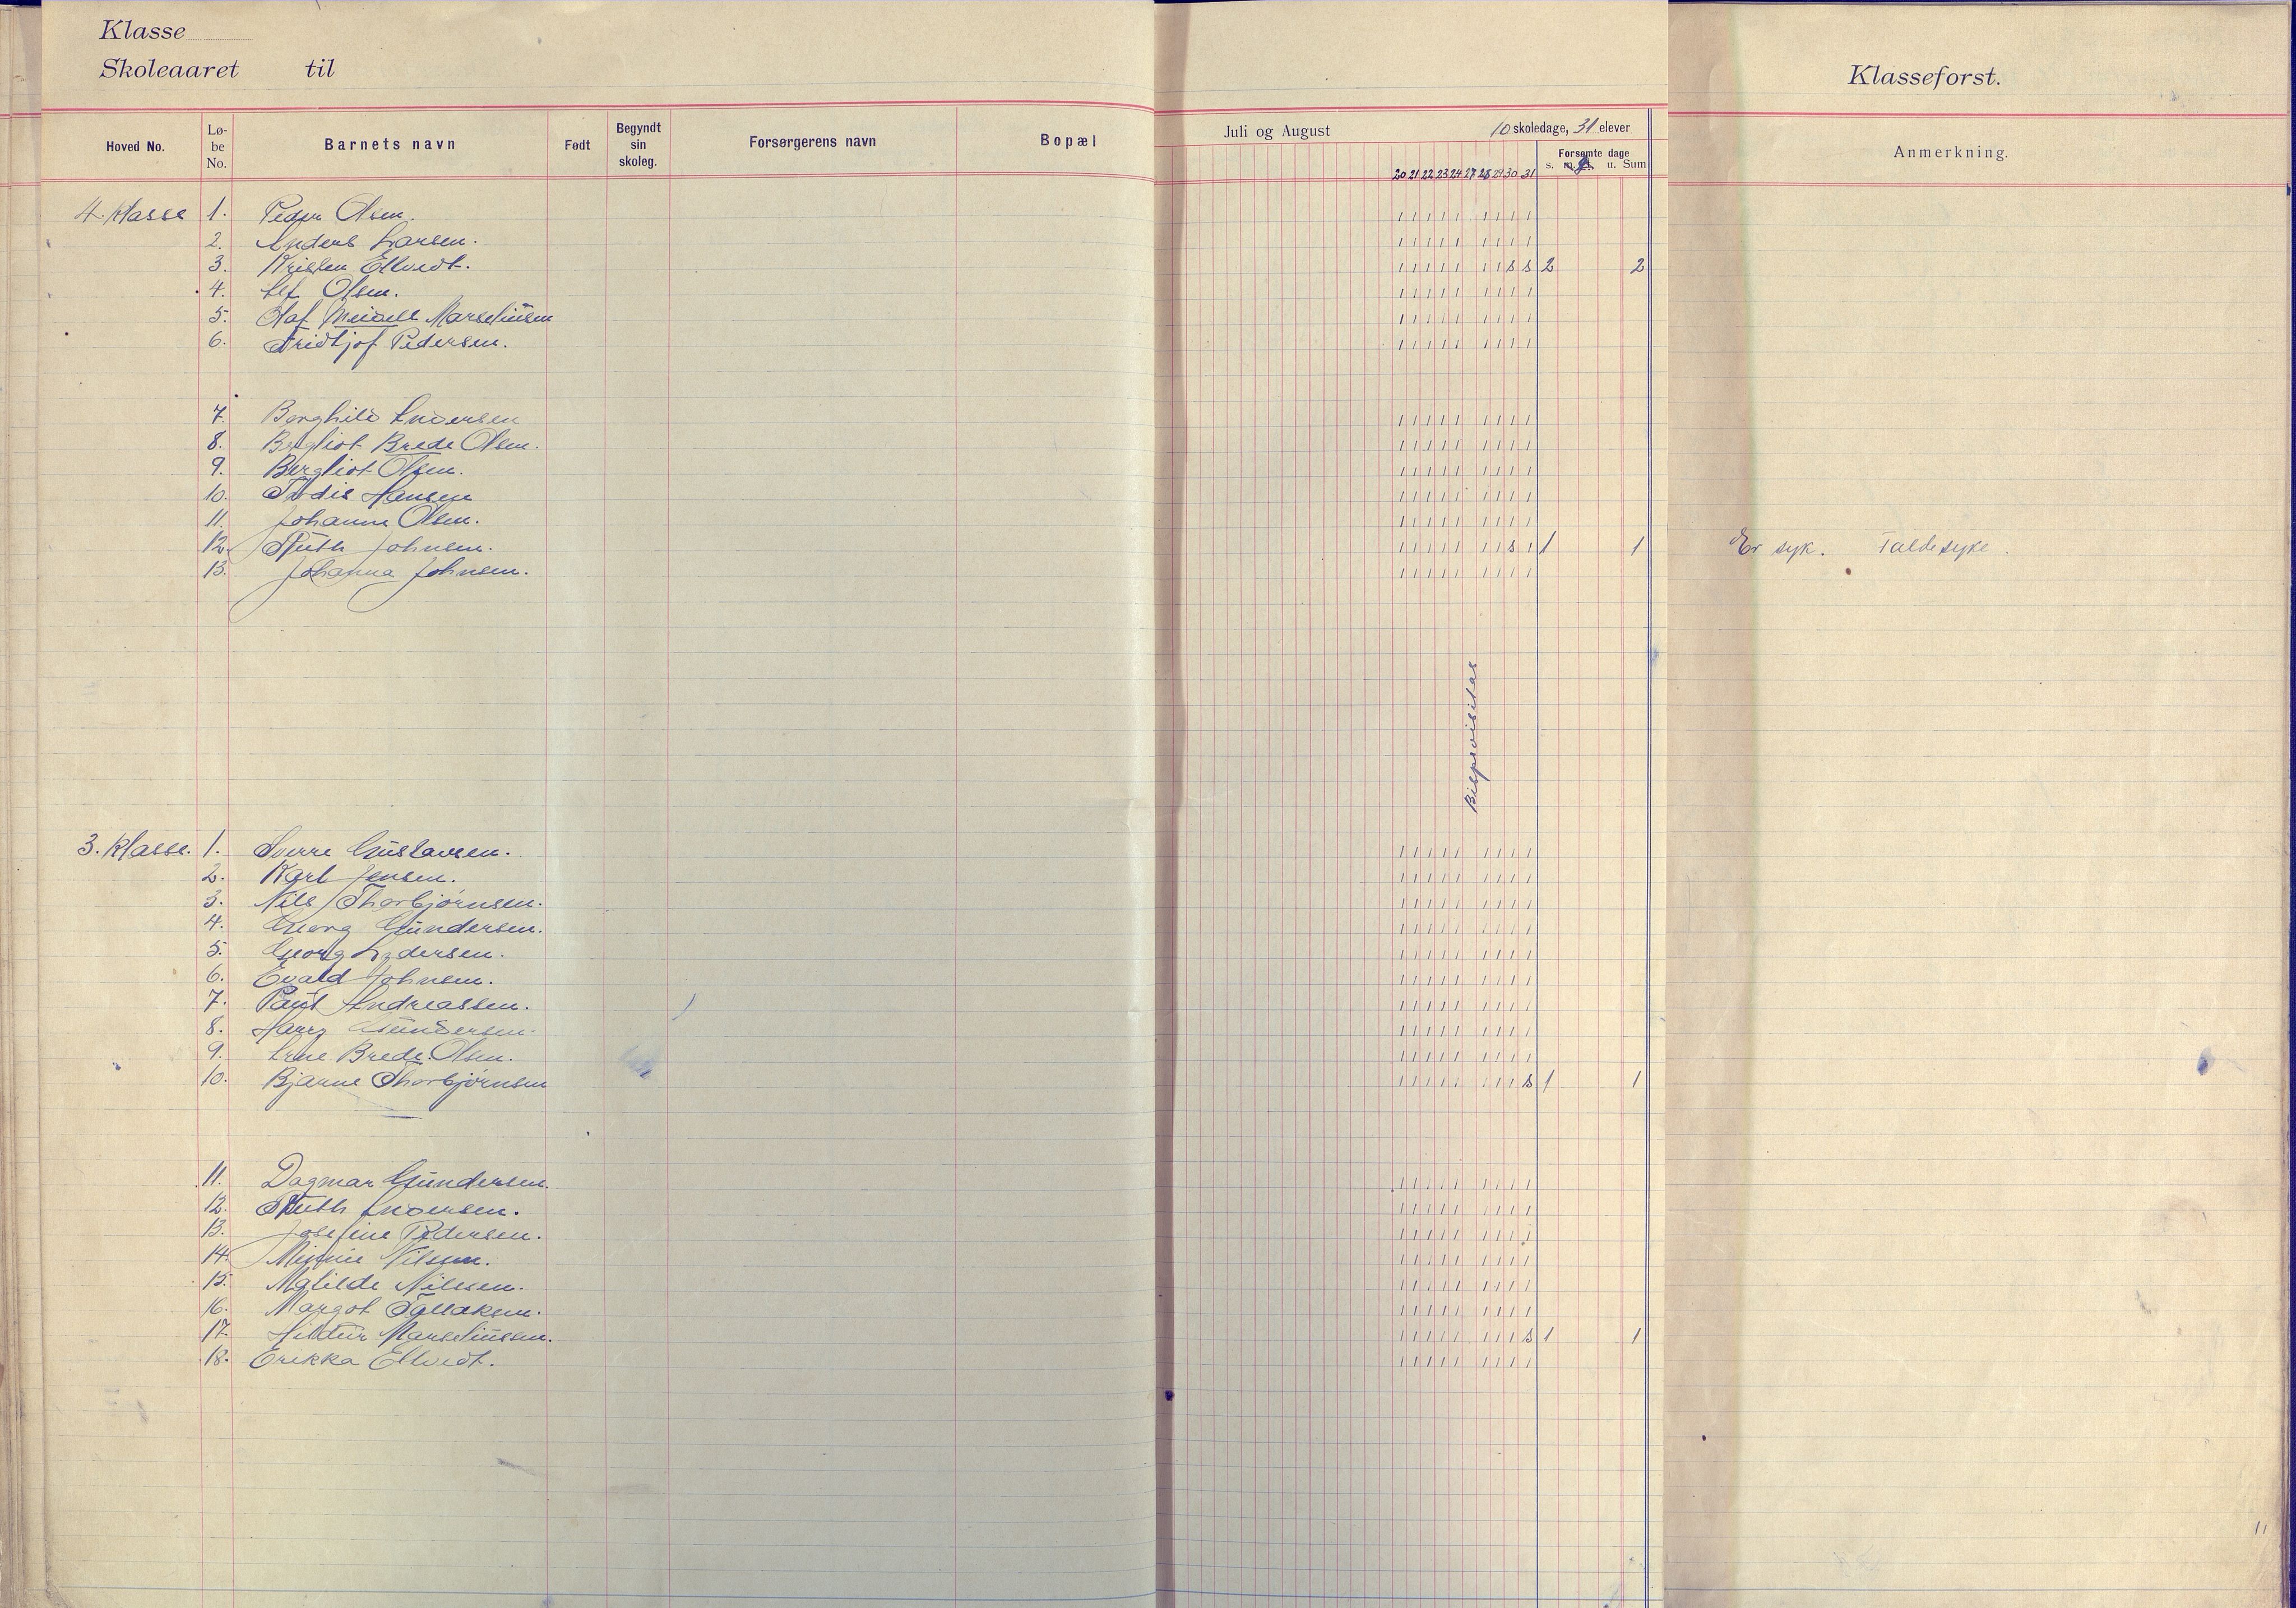 Klasse
Skoleaaret til
Klasseforst.
Hoved No. Lø-be No. Barnets navn Født Begyndt sin skoleg. Forsørgerens navn Bopæl
Juli og August 10 skoledage, 31 elever
Forsømte dage
20 21 22 23 24 27 28 29 30 31 s. m. u. Sum
Anmerkning.
4. Klasse 1. Peder Olsen. 1 1 1 1 1 1 1 1 1
2. Anders Larsen. 1 1 1 1 1 1 1 1 1
3. Kristen Ellvedt. 1 1 1 1 1 1 1 s s 2 2
4. Alf Olsen. 1 1 1 1 1 1 1 1 1
5. Olaf Meidell Marseliusen 1 1 1 1 1 1 1 1 1
6. Fridtjof Pedersen. 1 1 1 1 1 1 1 1 1
7. Borghild Andersen 1 1 1 1 1 1 1 1 1
8. Bergliot Brede Olsen. 1 1 1 1 1 1 1 1 1
9. Bergliot Olsen. 1 1 1 1 1 1 1 1 1
10. Tordis Hansen 1 1 1 1 1 1 1 1 1
11. Johanne Olsen. 1 1 1 1 1 1 1 1 1
12. Ruth Johnsen. 1 1 1 1 1 1 1 s 1 1 1 Er syk.
13. Johanna Johnsen. 1 1 1 1 1 1 1 1 1
Bispevisitas
3. Klasse. 1. Sverre Gustavsen. 1 1 1 1 1 1 1 1 1
2. Karl Jensen. 1 1 1 1 1 1 1 1 1
3. Nils Thorbjørnsen. 1 1 1 1 1 1 1 1 1
4. Georg Gundersen. 1 1 1 1 1 1 1 1 1
5. Georg Lydersen. 1 1 1 1 1 1 1 1 1
6. Evald Johnsen. 1 1 1 1 1 1 1 1 1
7. Paul Andreassen. 1 1 1 1 1 1 1 1 1
8. Harry Gundersen. 1 1 1 1 1 1 1 1 1
9. Arne Brede Olsen. 1 1 1 1 1 1 1 1 1
10. Bjarne Thorbjørnsen 1 1 1 1 1 1 1 1 s 1 1
11. Dagmar Gundersen. 1 1 1 1 1 1 1 1 1
12. Ruth Andersen. 1 1 1 1 1 1 1 1 1
13. Josefine Pedersen. 1 1 1 1 1 1 1 1 1
14. Minnie Nilsen. 1 1 1 1 1 1 1 1 1
15. Matilde Nilssen. 1 1 1 1 1 1 1 1 1
16. Margot Tallaksen. 1 1 1 1 1 1 1 1 1
17. Hildur Marseliussen. 1 1 1 1 1 1 1 1 s 1 1
18. Erikka Ellvedt. 1 1 1 1 1 1 1 1 1